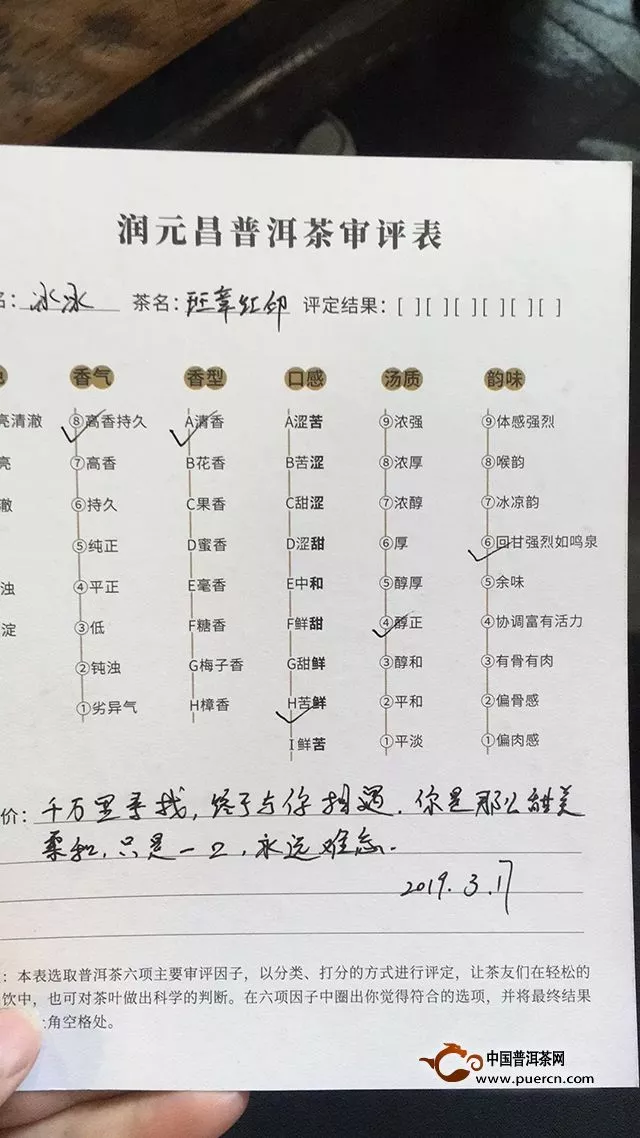 润元昌普洱茶审评表
名: 冰冰 茶名: 班章红印 评定结果: [ ] [ ] [ ] [ ] [ ] [ ]
香气 香型 口感 汤质 韵味
亮清澈 ⑧高香持久 A清香 A涩苦 ⑨浓强 ⑨体感强烈
亮 ⑦高香 B花香 B苦涩 ⑧浓厚 ⑧喉韵
澈 ⑥持久 C果香 C甜涩 ⑦浓醇 ⑦冰凉韵
⑤纯正 D蜜香 D涩甜 ⑥厚 ⑥回甘强烈如鸣泉
浊 ④平正 E毫香 E中和 ⑤醇厚 ⑤余味
淀 ③低 F糖香 F鲜甜 ④醇正 ④协调富有活力
②钝浊 G梅子香 G甜鲜 ③醇和 ③有骨有肉
①劣异气 H樟香 H苦鲜 ②平和 ②偏骨感
I鲜苦 ①平淡 ①偏肉感
价: 千万里寻找,终于与你相遇.你是那么甜美
柔和,只是一口,永远难忘.
2019.3.17
: 本表选取普洱茶六项主要审评因子，以分类、打分的方式进行评定，让茶友们在轻松的
饮中，也可对茶叶做出科学的判断。在六项因子中圈出你觉得符合的选项，并将最终结果
角空格处。
中国普洱茶网
www.puercn.com